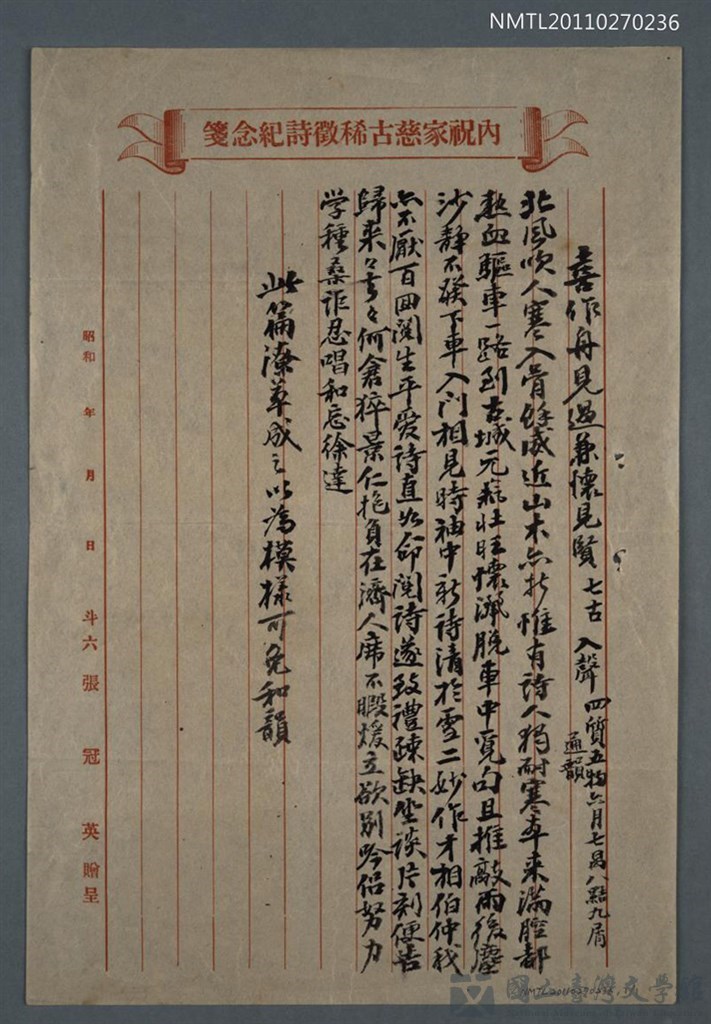 NMTL20110270236
內祝家慈古稀徵詩紀念箋
喜作舟見過兼懷見賢 七古 入聲 四質五物六月七曷八黠九屑
通韻
北風吹人寒入骨餘威近山木亦折惟有詩人獨耐寒車來滿腔都
熱血驅車一路到古城元龍壯旺懷灑脫車中覓句且推敲雨後塵
沙靜不發下車入門相見時袖中新詩清於雪二妙作才相伯仲我
亦不厭百回閱生平愛詩直如命閱詩遂致禮疎缺坐談片刻便告
歸來々去々何倉猝景仁抱負在濟人席不暇煖立欲別吟侶努力
学種桑詎忍唱和忘徐達
此篇潦草成之以為模樣可免和韻
昭和 年 月 日 斗六 張冠英 贈呈
國立臺灣文學館
NMTL20110270236